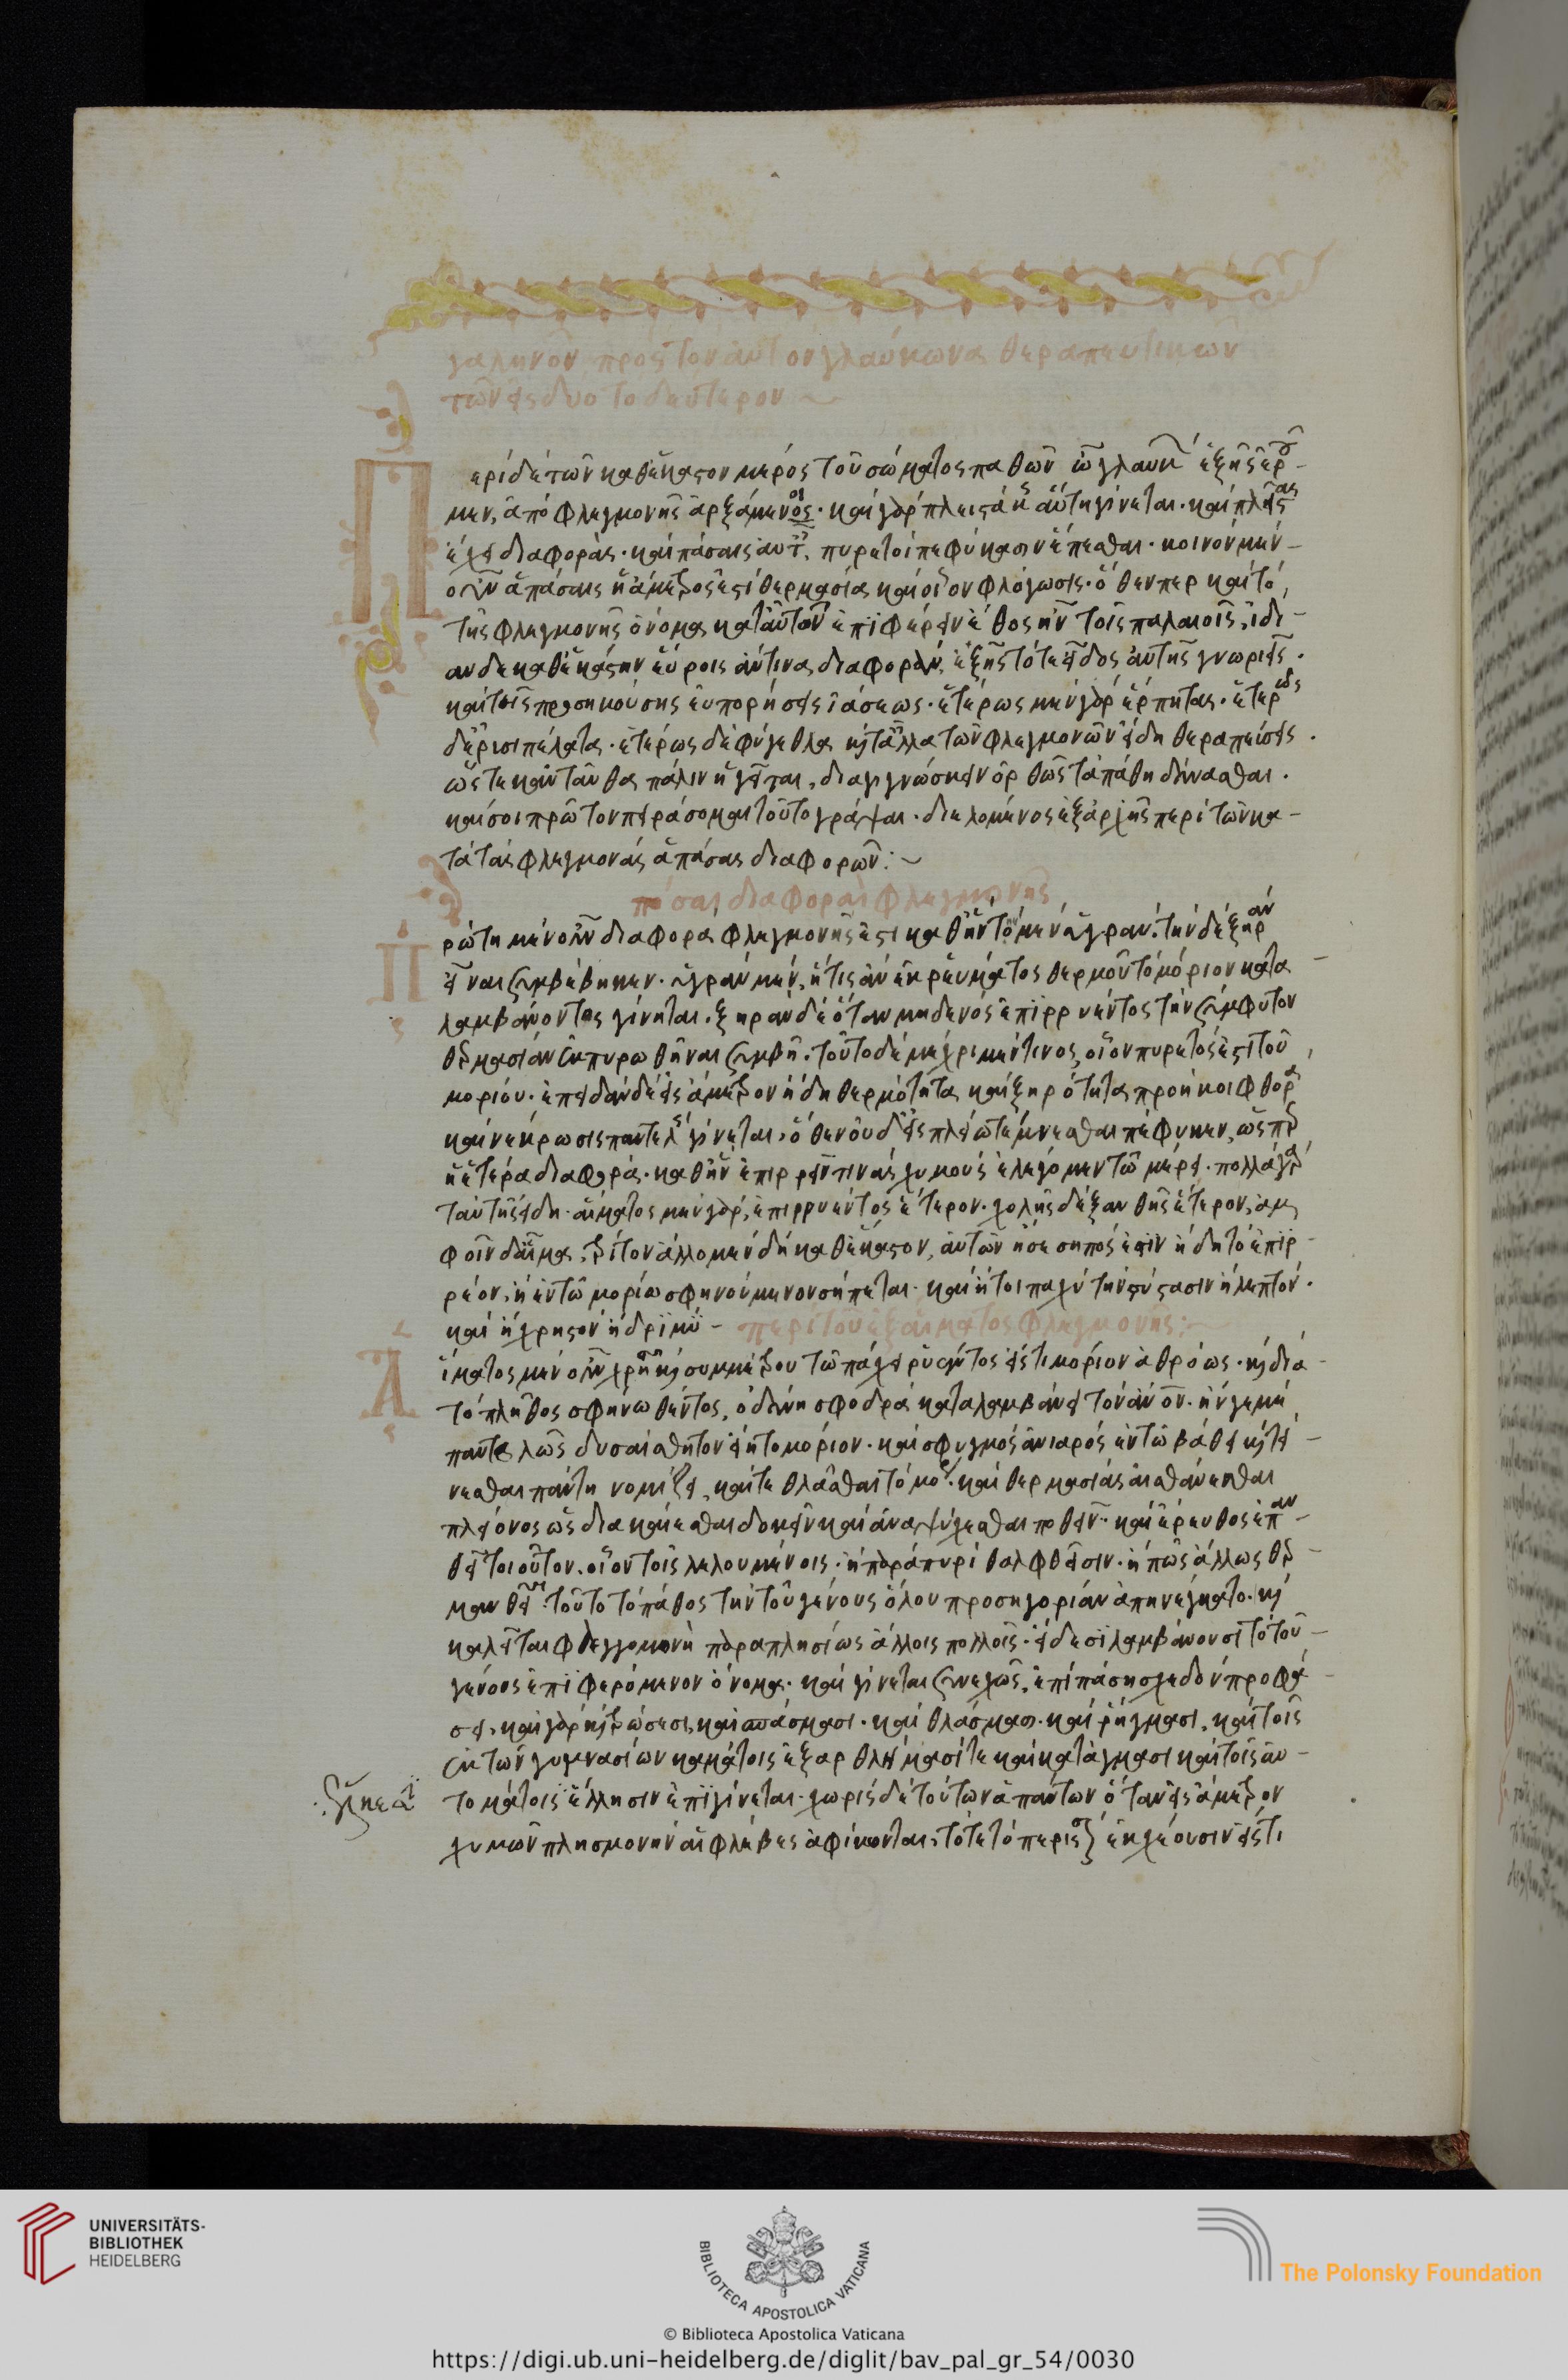 γαληνοῦ πρὸς τὸν αὐτὸν γλαύκωνα θεραπευτικῶν
τῶν εἰς δυο το δεύτερον ~
Περὶ δὲ τῶν καθ' ἕκαστον μέρος τοῦ σώματος παθῶν ὦ γλαύκ ἑξῆς ἐρου-
μεν, ἀπὸ φλεγμονῆς ἀρξάμενος· καὶ γὰρ πλειστάκις αὕτη γίνεται· καὶ πλείστας
ἔχει διαφοράς· καὶ πάσαις αὐτ. πυρετοὶ πεφύκασιν ἕπεσθαι· κοινὸν μὲν
οὖν ἁπάσαις ἡ ἄμετρος ἐστὶ θερμασία καὶ οἷον φλόγωσις· ὅθεν περ καὶ τὸ
τῆς φλεγμονῆς ὄνομα κατ' αὐτῶν ἐπιφέρειν ἔθος ἦν τοῖς παλαιοῖς, ἰδί-
αν δὲ καθ' ἑκάστην εὕροις ἄν τινα διαφοράν, ἑξῆς τό τε εἶδος αὐτῆς γνωριεῖς.
καὶ τῆς προσηκούσης εὐπορήσεις ἰάσεως· ἑτέρως μὲν γὰρ ἕρπητας· ἑτέρως
δ' ἐρισιπέλατα· ἑτέρως δὲ φύγεθλα καὶ τἄλλα τῶν φλεγμονῶν εἴδη θεραπεύσεις.
ὥστε κἀνταῦθα πάλιν ἡγεῖται, διαγιγνώσκειν ὀρθῶς τὰ πάθη δύνασθαι.
καὶ σοι πρῶτον πειράσομαι τοῦτο γράψαι· διελόμενος ἐξ ἀρχῆς περὶ τῶν κα-
τὰ τὰς φλεγμονὰς ἁπάσας διαφορῶν:~
πόσαι διαφοραὶ φλεγμονῆς
Πρώτη μὲν οὖν διαφορὰ φλεγμονῆς ἐστι καθ' ἣν τὸ μὲν ὑγράν. τὴν δὲ ξηρὰν
εἶναι συμβέβηκεν· ὑγρὰν μὲν, ἥτις ἂν ἐκ ῥεύματος θερμοῦ τὸ μόριον κατα
λαμβάνοντος γίνηται. ξηρὰν δὲ ὅταν μηδενὸς ἐπιρρυέντος τὴν σύμφυτον
θερμασίαν ἐκπυρωθῆναι συμβῇ. τοῦτο δὲ μέχρι μέν τινος, οἷον πυρετός ἐστι τοῦ
μορίου· ἐπειδὰν δὲ εἰς ἄμετρον ἤδη θερμότητα καὶ ξηρότητα προήκοι φθορὰ
καὶ νέκρωσις παντελὴς γίνεται· ὅθεν οὐδ' εἰς πλείω τέμνεσθαι πέφυκεν, ὥσπερ
ἡ ἑτέρα διαφορά· καθ' ἣν ἐπιρρεῖν τινὰς χυμοὺς ἐλέγομεν τῷ μέρει· πολλὰ γὰρ
ταύτης εἴδη· αἵματος μὲν γὰρ, ἐπιρρυέντος ἕτερον· χολῆς δὲ ξανθῆς ἕτερον, ἀμ
φοῖν δ' ἅμα, τρίτον ἄλλο μὲν δὴ καθ' ἕκαστον, αὐτῶν ἢ σεσηπός ἐστιν ἤδη τὸ ἐπιρ-
ρέον, ἢ ἐν τῷ μορίῳ σφηνούμενον σήπεται· καὶ ἤτοι παχὺ τὴν σύστασιν ἢ λεπτόν.
καὶ ἢ χρηστὸν ἢ δριμύ - περὶ τοῦ ἐξ αἵματος φλεγμονῆς:
Αἵματος μὲν οὖν χρηστοῦ καὶ συμμέτρου τῷ πάχει ῥυέντος εἴς τι μόριον ἀθρόως· καὶ διὰ
τὸ πλῆθος σφηνωθέντος, ὀδύνη σφοδρὰ καταλαμβάνει τὸν ἄνον. ἢν γε μὴ
παντελῶς δυσαίσθητον εἴη τὸ μόριον· καὶ σφυγμὸς ἀνιαρὸς ἐν τῷ βάθει καὶ τεί-
νεσθαι πάντη νομίζει, καί τε θλᾶσθαι τὸ μο· καὶ θερμασίας αἰσθάνεσθαι
πλείονος ὡς διακαίεσθαι δοκεῖν καὶ ἀναψύχεσθαι ποθεῖν· καὶ ἔρευθος ἐπαν-
θεῖ τοιοῦτον. οἷον τοῖς λελουμένοις· ἢ παρὰ πυρὶ θαλφθεῖσιν· ἢ πῶς ἄλλως θερ-
μανθεῖσι· τοῦτο τὸ πάθος τὴν τοῦ γένους ὅλου προσηγορίαν ἀπηνέγκατο· καὶ
καλεῖται φλεγμονὴ παραπλησίως ἄλλοις πολλοῖς· εἴδεσι λαμβάνουσι τὸ τοῦ
γένους ἐπιφερόμενον ὄνομα· καὶ γίνεται συνεχῶς, ἐπὶ πάσῃ σχεδὸν προφά-
σει, καὶ γὰρ καὶ τρώσεσι, καὶ σπάσμασι· καὶ θλάσμασι· καὶ ῥήγμασι, καὶ τοῖς
ἐκ τῶν γυμνασίων καμάτοις ἐξαρθλήμασί τε καὶ κατάγμασι καὶ τοῖς αὐ-
τομάτοις ἕλκεσιν ἐπιγίνεται· χωρὶς δὲ τούτων ἁπάντων ὅταν εἰς ἄμετρον
χυμῶν πλησμονὴν αἱ φλέβες ἀφίκωνται, τότε τὸ περισ ἐκχέουσιν εἴς τι
UNIVERSITÄTS-
BIBLIOTHEK
HEIDELBERG
BIBLIOTECA APOSTOLICA VATICANA
The Polonsky Foundation
© Biblioteca Apostolica Vaticana
https://digi.ub.uni-heidelberg.de/diglit/bav_pal_gr_54/0030